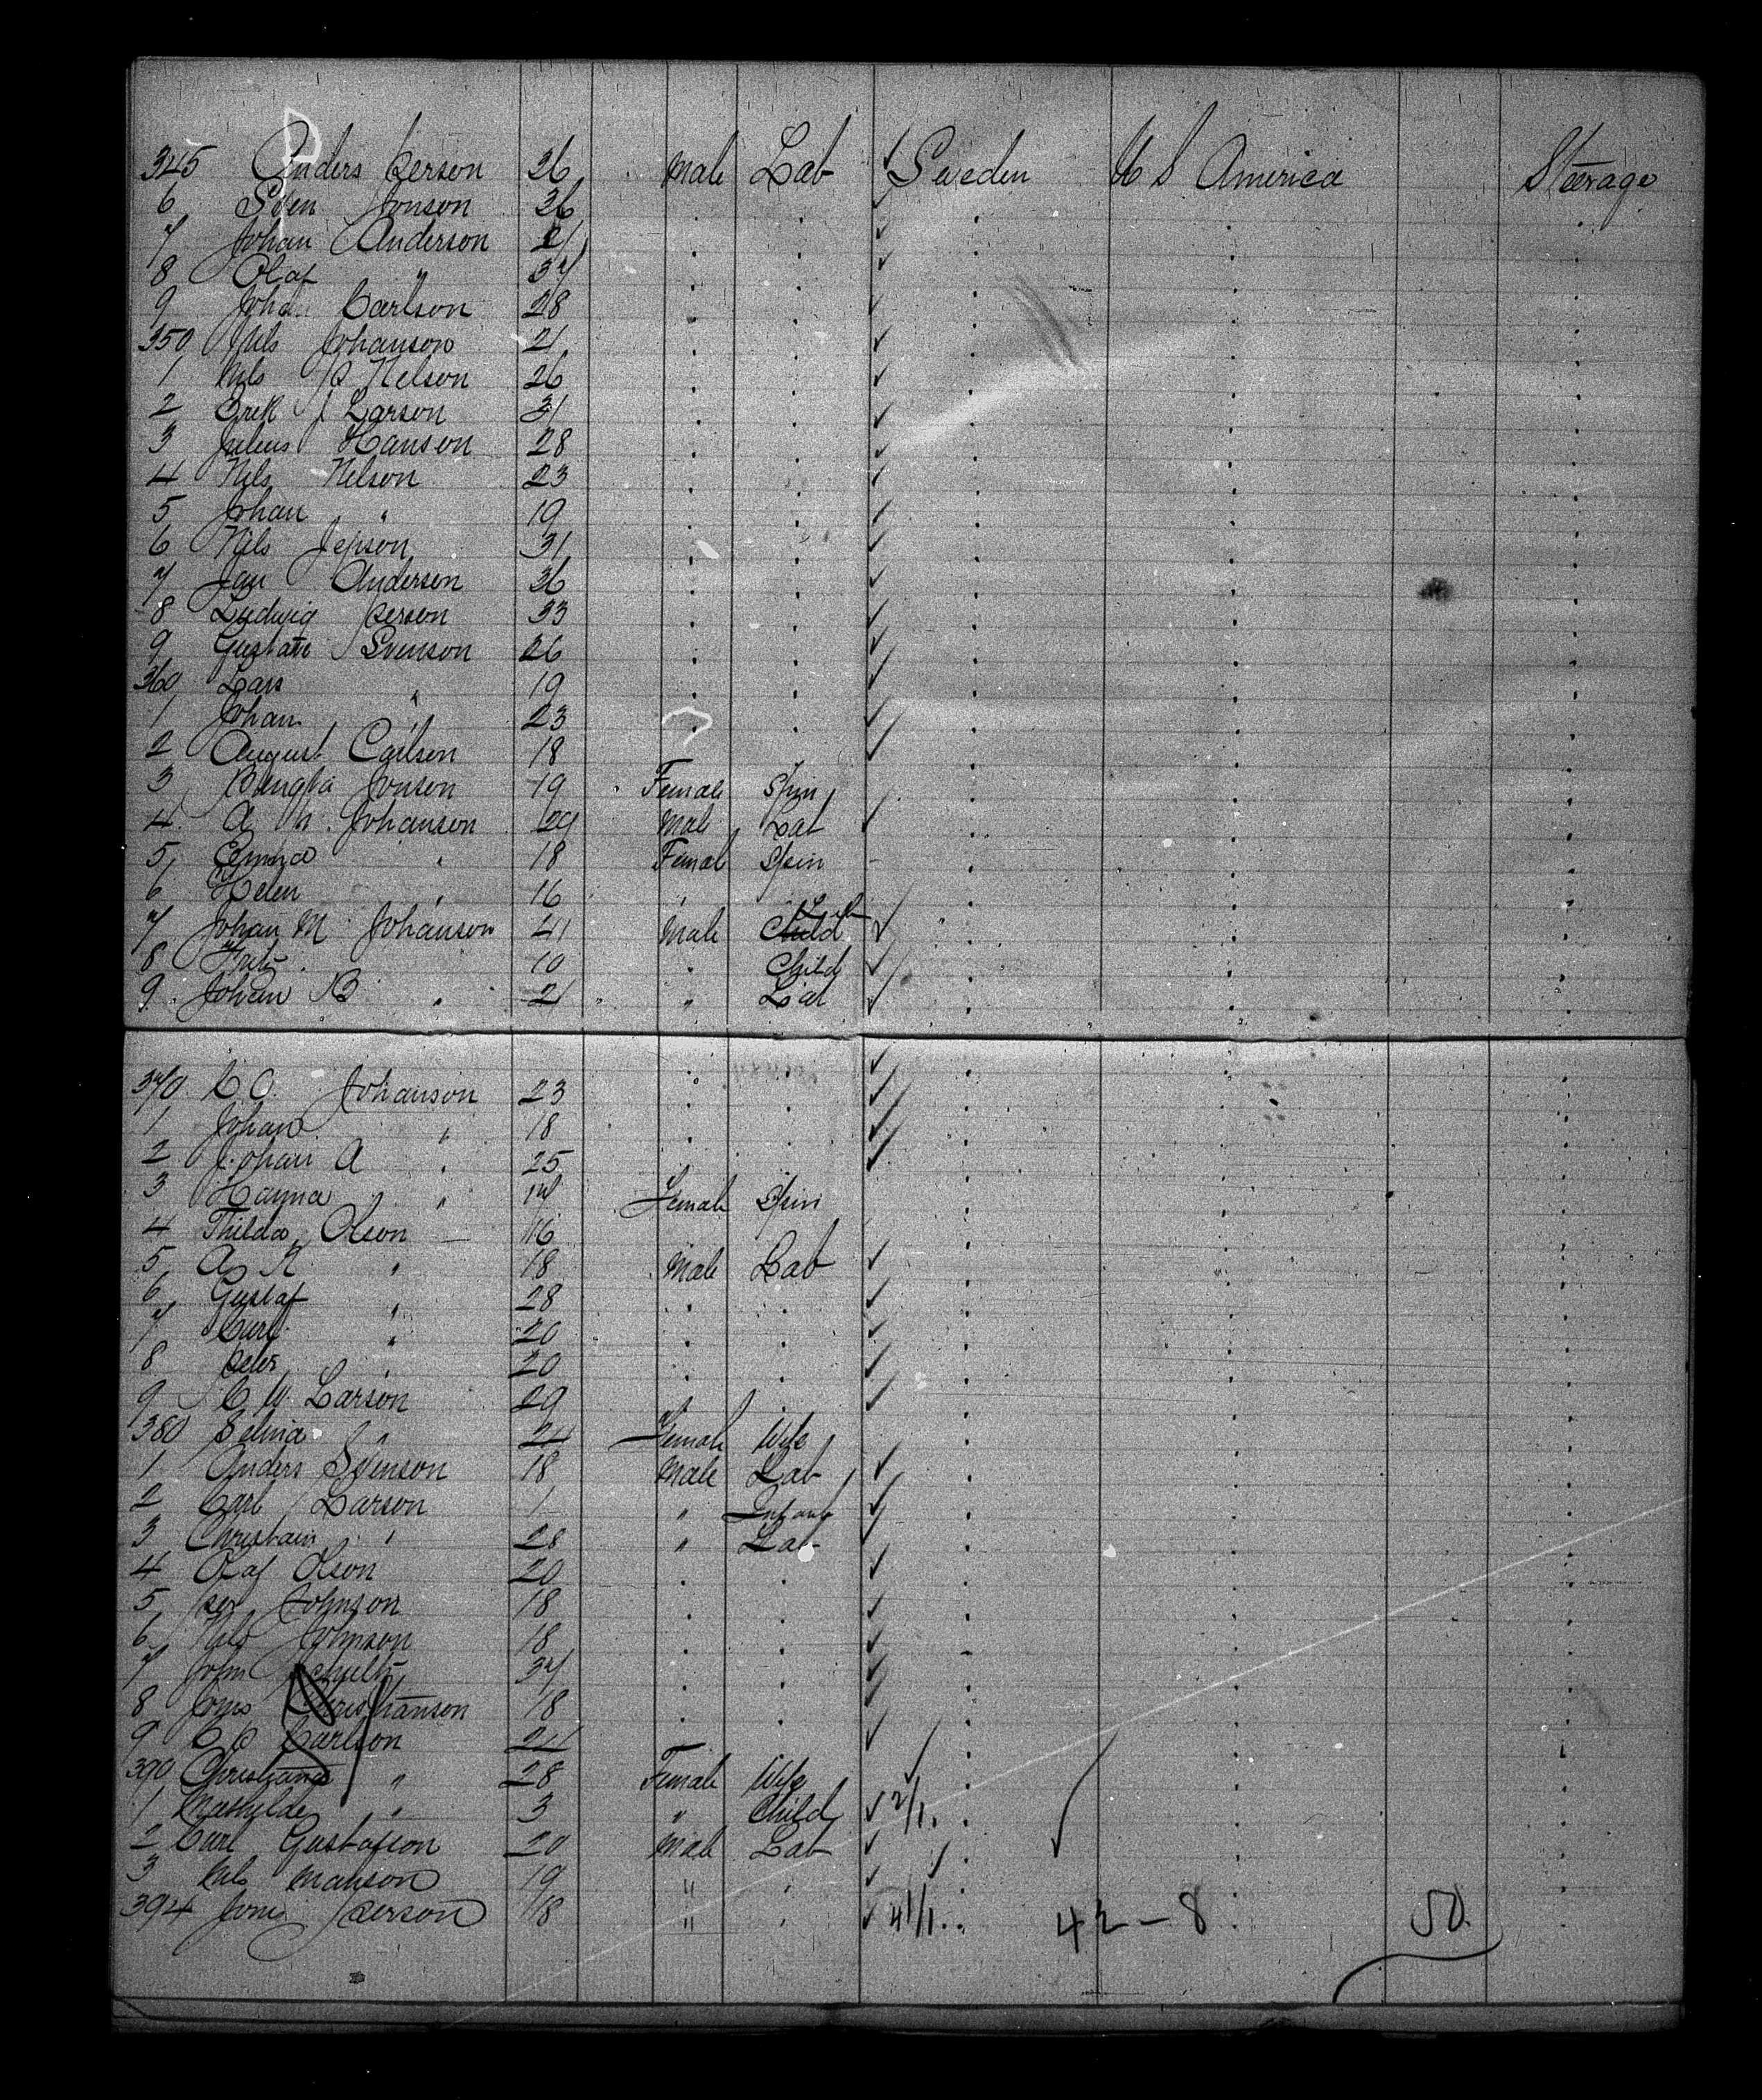 345 Anders Person 26 Male Lab ✓ Sweden U S America Steerage
6 Sven Jonson 36 . . ✓ . . .
7 Johan Anderson 21 . . ✓ . . .
8 Olaf " 37 . . ✓ . . .
9 Johan Carlson 28 . . ✓ . . .
350 Nils Johanson 21 . . ✓ . . .
1 Nils P Nelson 26 . . ✓ . . .
2 Erik J Larson 31 . . ✓ . . .
3 Julius Hanson 28 . . ✓ . . .
4 Nils Nelson 23 . . ✓ . . .
5 Johan " 19 . . ✓ . . .
6 Nils Jepson 31 . . ✓ . . .
7 Jan Anderson 36 . . ✓ . . .
8 Ludwig Person 33 . . ✓ . . .
9 Gustav Svenson 26 . . ✓ . . .
360 Lars " 19 . . ✓ . . .
1 Johan " 23 . . ✓ . . .
2 August Carlson 18 . . ✓ . . .
3 Bengta Jonson 19 Female Spin . . .
4 A Johanson 29 Male Lab ✓ . . .
5 Emma " 18 Female Spin - . . .
6 Helen " 16 " . . . .
7 Johan M Johanson 41 Male Child Lab ✓ . . .
8 10 " Child ✓ . . .
9 Johan B " 21 " Lab ✓ . . .
370 C O. Johanson 23 . . ✓ . . .
1 Johan " 18 . . ✓ . . .
2 Johan A " 25 . . ✓ . . .
3 Hanna " 17 Female Spin . . .
4 Thilda Olson 16 . . .
5 A " 18 Male Lab ✓ . . .
6 Gustaf " 28 . . ✓ . . .
7 Carl " 20 . . ✓ . . .
8 Peter " 20 . . ✓ . . .
9 C W Larson 29 . . ✓ . . .
380 Selma " 24 Female Wife . . .
1 Anders Svenson 18 Male Lab ✓ . . .
2 Carl Larson 1 " Infant ✓ . . .
3 Christain " 28 " Lab . . .
4 Olaf Olson 20 . . ✓ . . .
5 Per Johnson 18 . . ✓ . . .
6 Nils Johnson 18 . . ✓ . . .
7 John Schultz 37 . . ✓ . . .
8 Jons Christianson 18 . . ✓ . . .
9 C P Carlson 21 . . ✓ . . .
390 Christiana " 28 Female Wife ✓ . . .
1 Mathilde " 3 " Child ✓ 2/1. . . .
2 Carl Gustafson 20 Male Lab ✓ . . .
3 Nils Manson 19 " . ✓ . . .
394 Jons Person 18 " . ✓ 41/1. . 42 - 8 50.